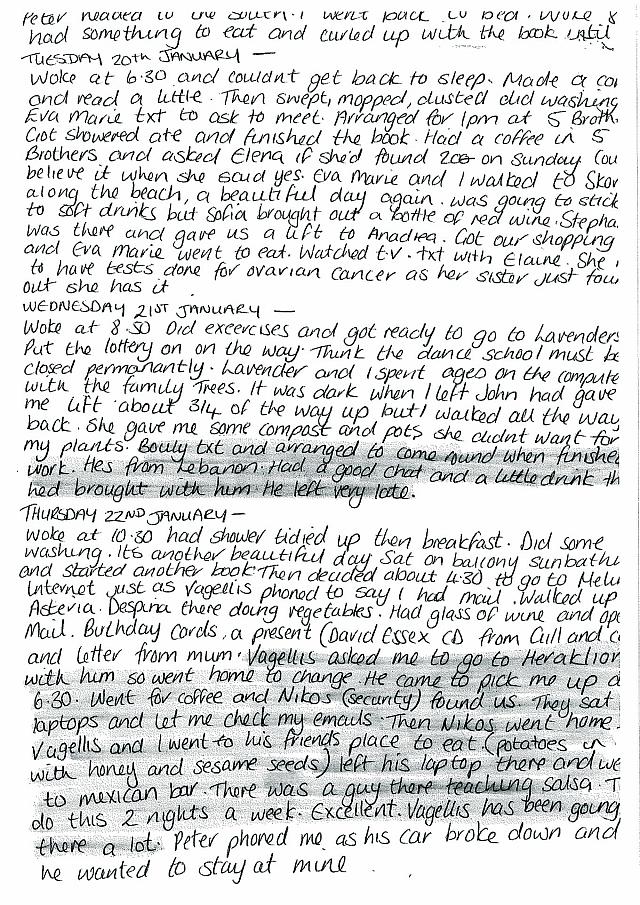 Peter headed to the south. I went back to bed. Woke &
had something to eat and curled up with the book until
TUESDAY 20TH JANUARY —
Woke at 6.30 and couldnt get back to sleep. Made a
and read a little. Then swept, mopped, dusted did washing
Eva Marie txt to ask to meet. Arranged for 1pm at 5 Broth
Got showered ate and finished the book. Had a coffee in 5
Brothers and asked Elena if she'd found 200 on Sunday Cou
believe it when she said yes. Eva Marie and I walked to Skor
along the beach, a beautiful day again. was going to stick
to soft drinks but Sofia brought out a bottle of red wine. Stepha
was there and gave us a lift to Anadrea. Got our shopping
and Eva marie went to eat. Watched t.v. txt with Elaine. She
to have tests done for ovarian cancer as her sister just fou
out she has it
WEDNESDAY 21ST JANUARY —
Woke at 8.50 Did excercises and got ready to go to Lavenders
Put the lottery on on the way. Think the dance school must be
closed permanantly. Lavender and I spent ages on the compute
with the family Trees. It was dark when I left John had gave
me lift about 3/4 of the way up but I walked all the way
back. She gave me some compost and pots she didnt want for
my plants. Bouly txt and arranged to come round when finished
work. Hes from Lebanon. Had a good chat and a little drink th
hed brought with him He left very late.
THURSDAY 22ND JANUARY —
Woke at 10.30 had shower tidied up then breakfast. Did some
washing. Its another beautiful day Sat on balcony sunbathi
and started another book Then decided about 4.30 to go to Melu
Internet just as Vagellis phoned to say I had mail. Walked up
Asteria. Despina there doing vegetables. Had glass of wine and ope
Mail. Birthday Cards, a present (David Essex CD from Cill and
and letter from mum. Vagellis asked me to go to Heraklion
with him so went home to change. He came to pick me up a
6.30. Went for coffee and Nikos (security) found us. They sat
laptops and let me check my emails. Then Nikos went home.
Vagellis and I went to his friends place to eat (potatoes in
with honey and sesame seeds) left his laptop there and we
to mexican bar. There was a guy there teaching salsa. T
do this 2 nights a week. Excellent. Vagellis has been going
there a lot. Peter phoned me as his car broke down and
he wanted to stay at mine